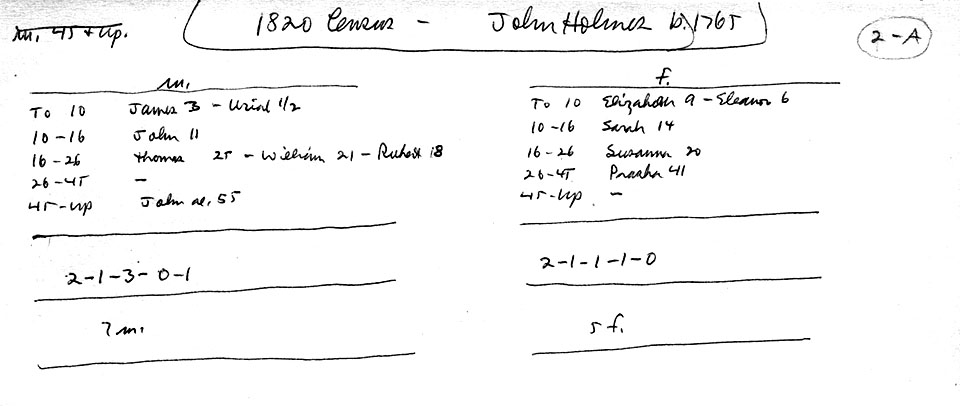 m. 45 + up.
1820 Census - John Holmes b. 1765
2-A
m.
To 10 James 3 - Uriah 1/2
10-16 John 11
16-26 Thomas 25 - William 21 - 18
26-45 -
45-up John ae. 55
2-1-3-0-1
7 m.
f.
To 10 Elizabeth 9 - Eleanor 6
10-16 Sarah 14
16-26 Susanna 20
26-45 41
45-up -
2-1-1-1-0
5 f.